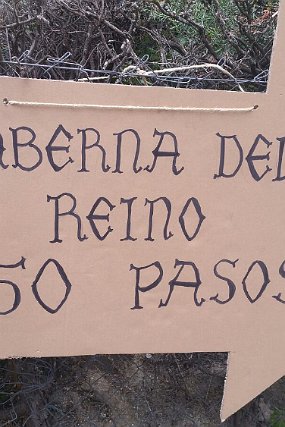 ABERNA DEL
REINO
50 PASOS